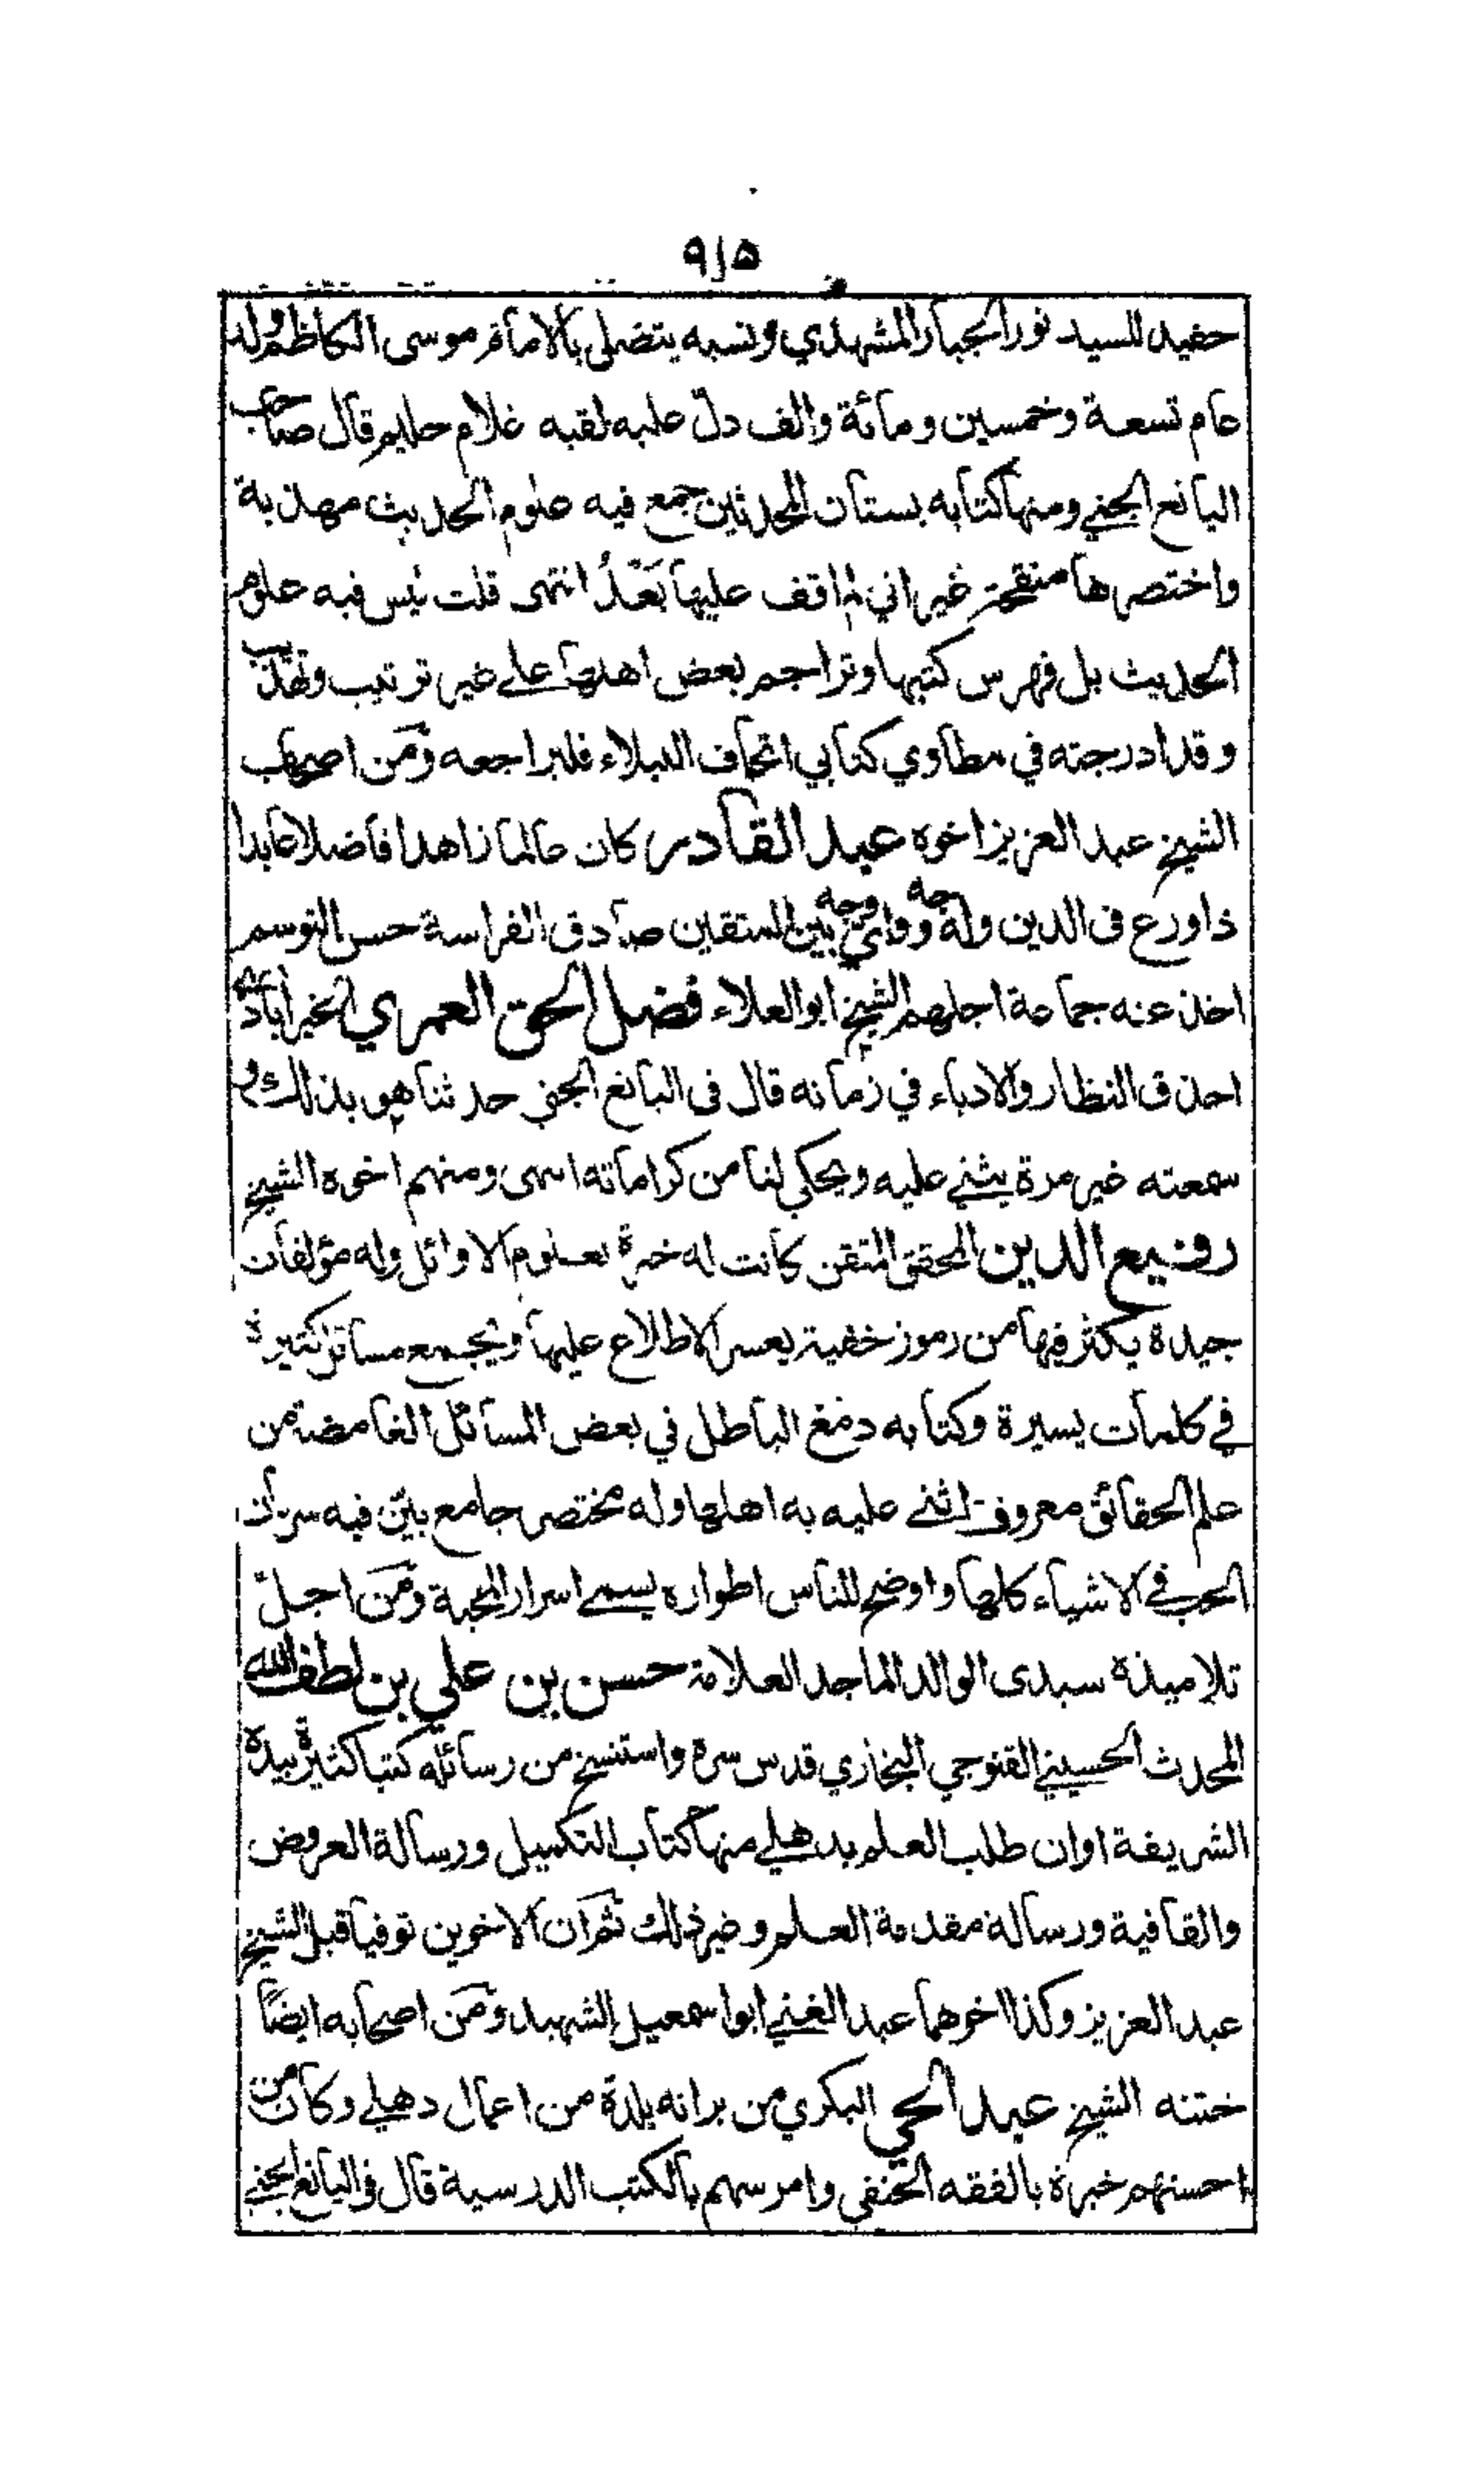 ٩١٥
حفيد للسيد نور الجبار المشهدي ونسبه يتصل بالامام موسى الكاظم ولد
عام تسعة وخمسين ومائة والف دلّ عليه لقبه غلام حليم قال صاحب
اليانع الجني ومنها كتابه بستان المحدثين جمع فيه علوم الحديث مهذبة
واختصرها منقحة غير اني لم اقف عليها بَعْدُ انتهى قلت ليس فيه علوم
الحديث بل فهرس كتبها وتراجم بعض اهلها على غير ترتيب وتهذيب
وقد ادرجته في مطاوي كتابي اتحاف النبلاء فليراجعه ومن اصحاب
الشيخ عبد العزيز اخوه عبد القادر كان عالما زاهدا فاضلا عابدا
ذا ورع في الدين وله وجه بين المتقين صادق الفراسة حسن التوسم
اخذ عنه جماعة اجلهم الشيخ ابو العلاء فضل الحق العمري الخيرآبادي
احذق النظار والادباء في زمانه قال في اليانع الجني حدثنا هو بذلك و
سمعته غير مرة يثني عليه ويحكي لنا من كراماته انتهى ومنهم اخوه الشيخ
رفيع الدين المحقق المتقن كانت له خبرة بعلوم الاوائل وله مؤلفات
جيدة يكثر فيها من رموز خفية يعسر الاطلاع عليها ويجمع مسائل كثيرة
في كلمات يسيرة وكتابه دمغ الباطل في بعض المسائل الغامضة من
علم الحقائق معروف اثنى عليه به اهلها وله مختصر جامع بيّن فيه سريان
الحب في الاشياء كلها واوضح للناس اطواره يسمى اسرار المحبة ومن اجلّ
تلاميذه سيدي الوالد الماجد العلامة حسن بن علي بن لطف الله
المحدث الحسيني القنوجي البخاري قدس سره واستنسخ من رسائله كتبا كثيرة بيده
الشريفة اوان طلب العلم بدهلي منها كتاب التكميل ورسالة العروض
والقافية ورسالة مقدمة العلم وغير ذلك ثم ان الاخوين توفيا قبل الشيخ
عبد العزيز وكذا اخوهما عبد الغني ابو اسمعيل الشهيد ومن اصحابه ايضًا
ختنه الشيخ عبد الحي البكري من برانه بلدة من اعمال دهلي وكان من
احسنهم خبرة بالفقه الحنفي وامرسهم بالكتب الدرسية قال في اليانع الجني